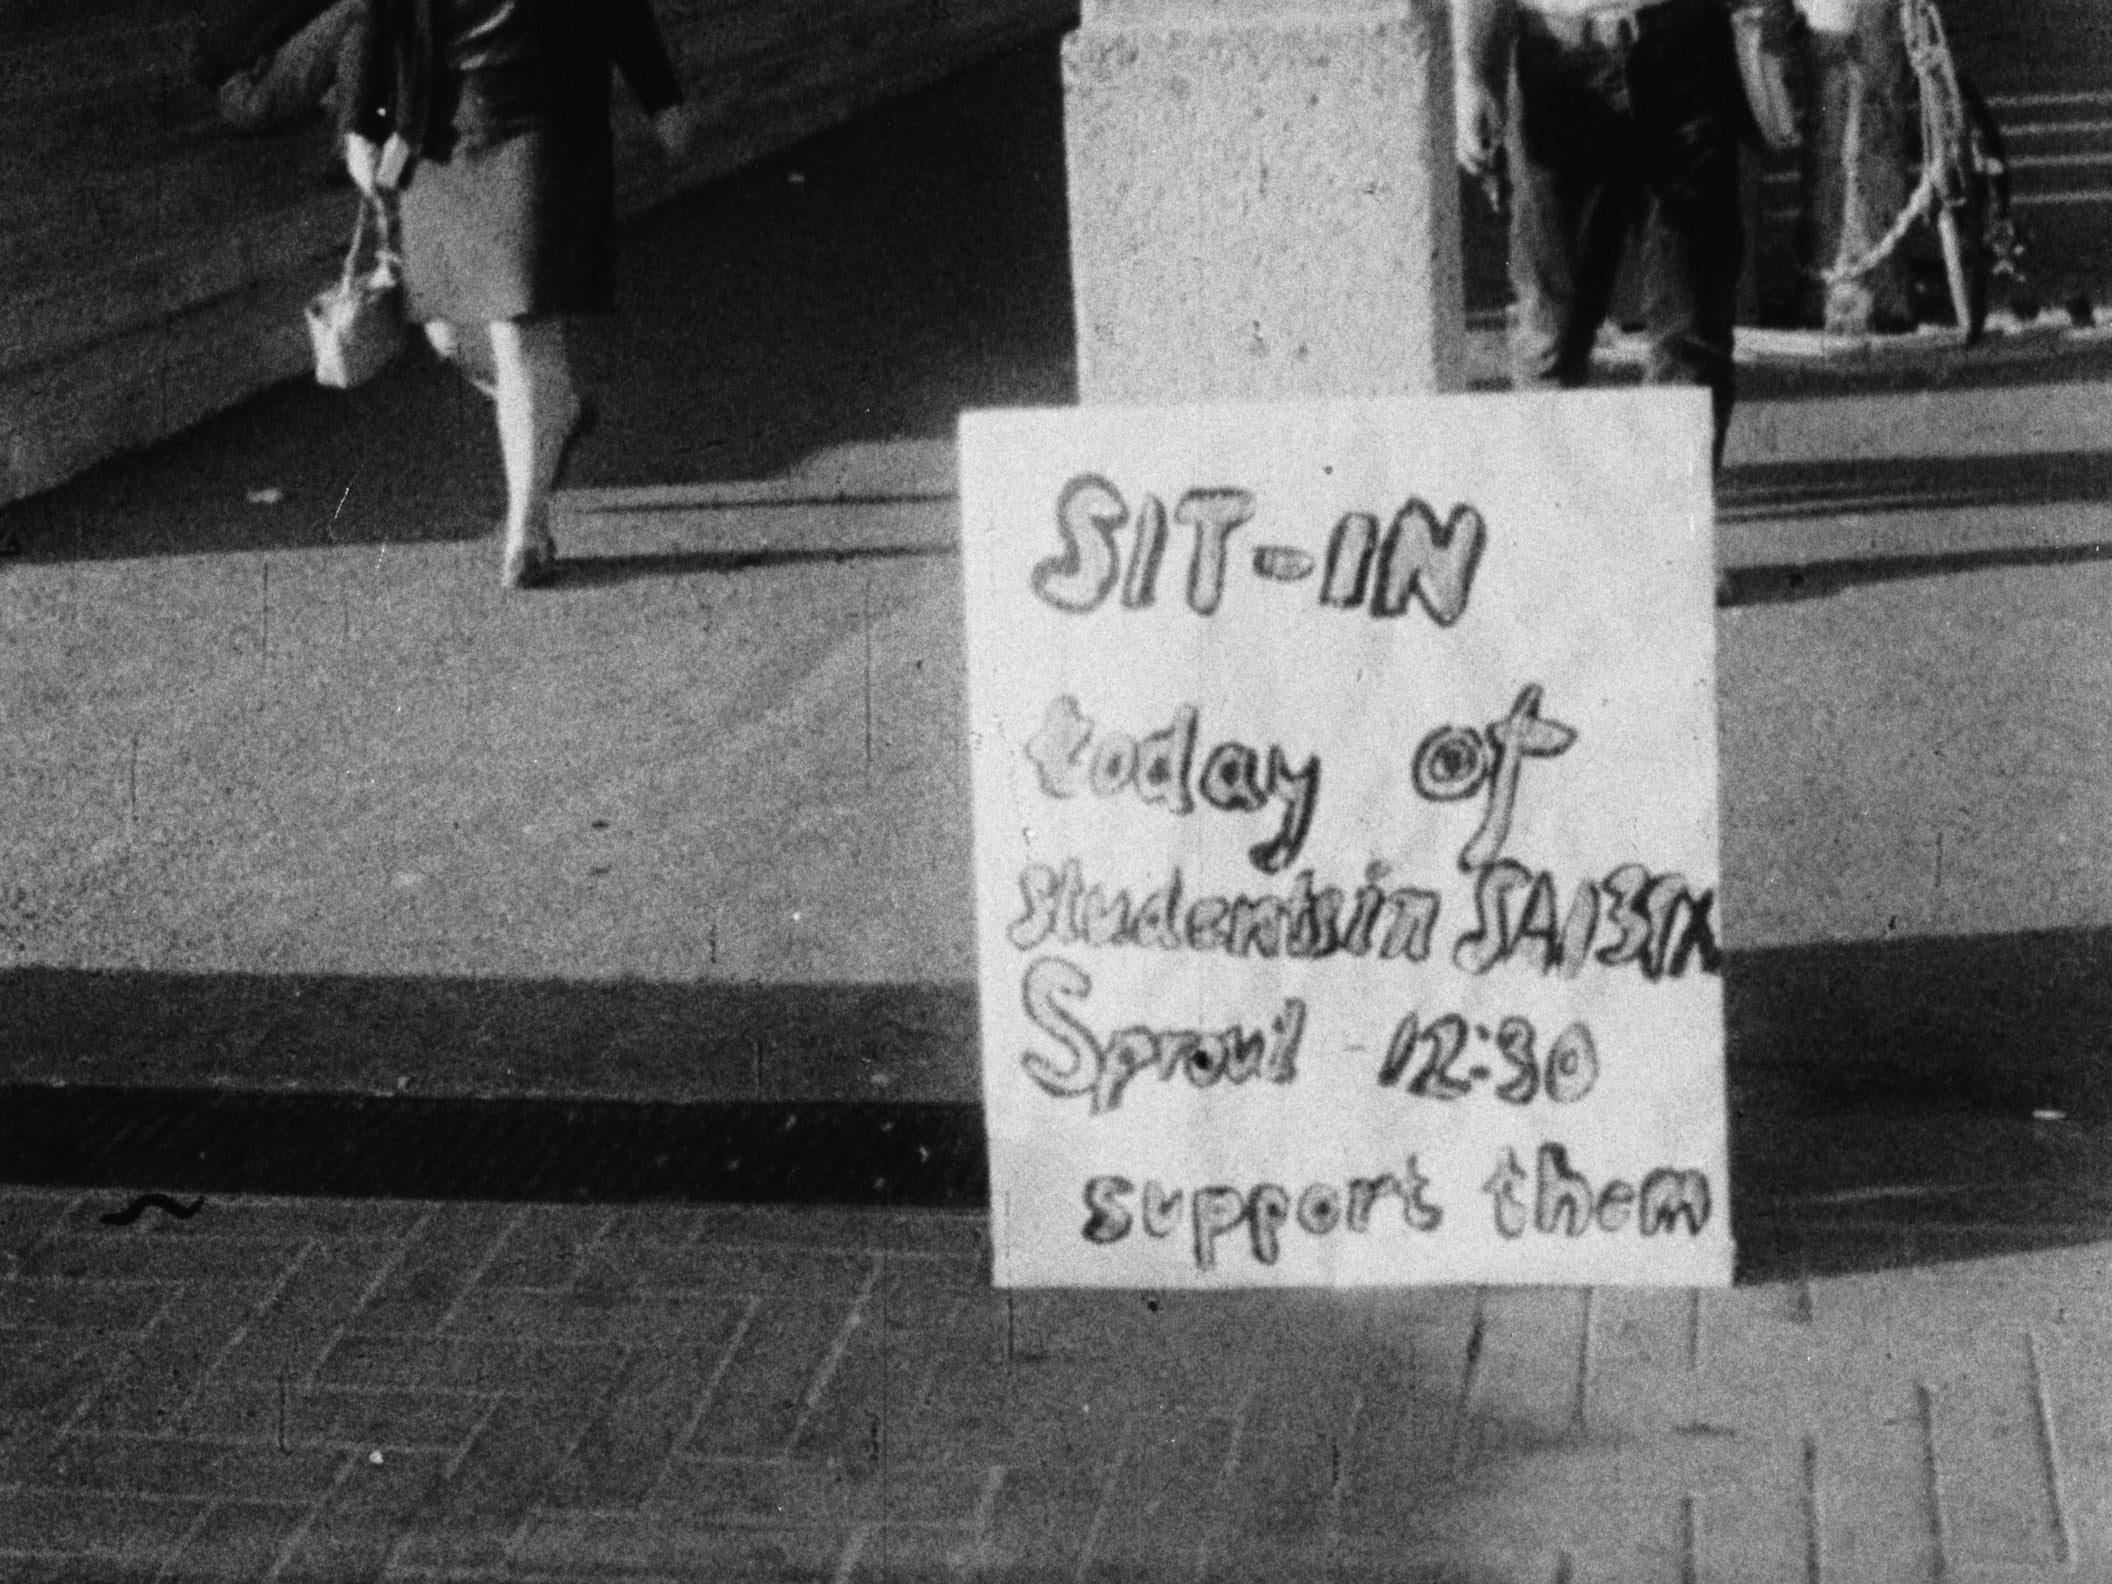 SIT-IN
today of
students in SA139X
Sproul - 12:30
support them